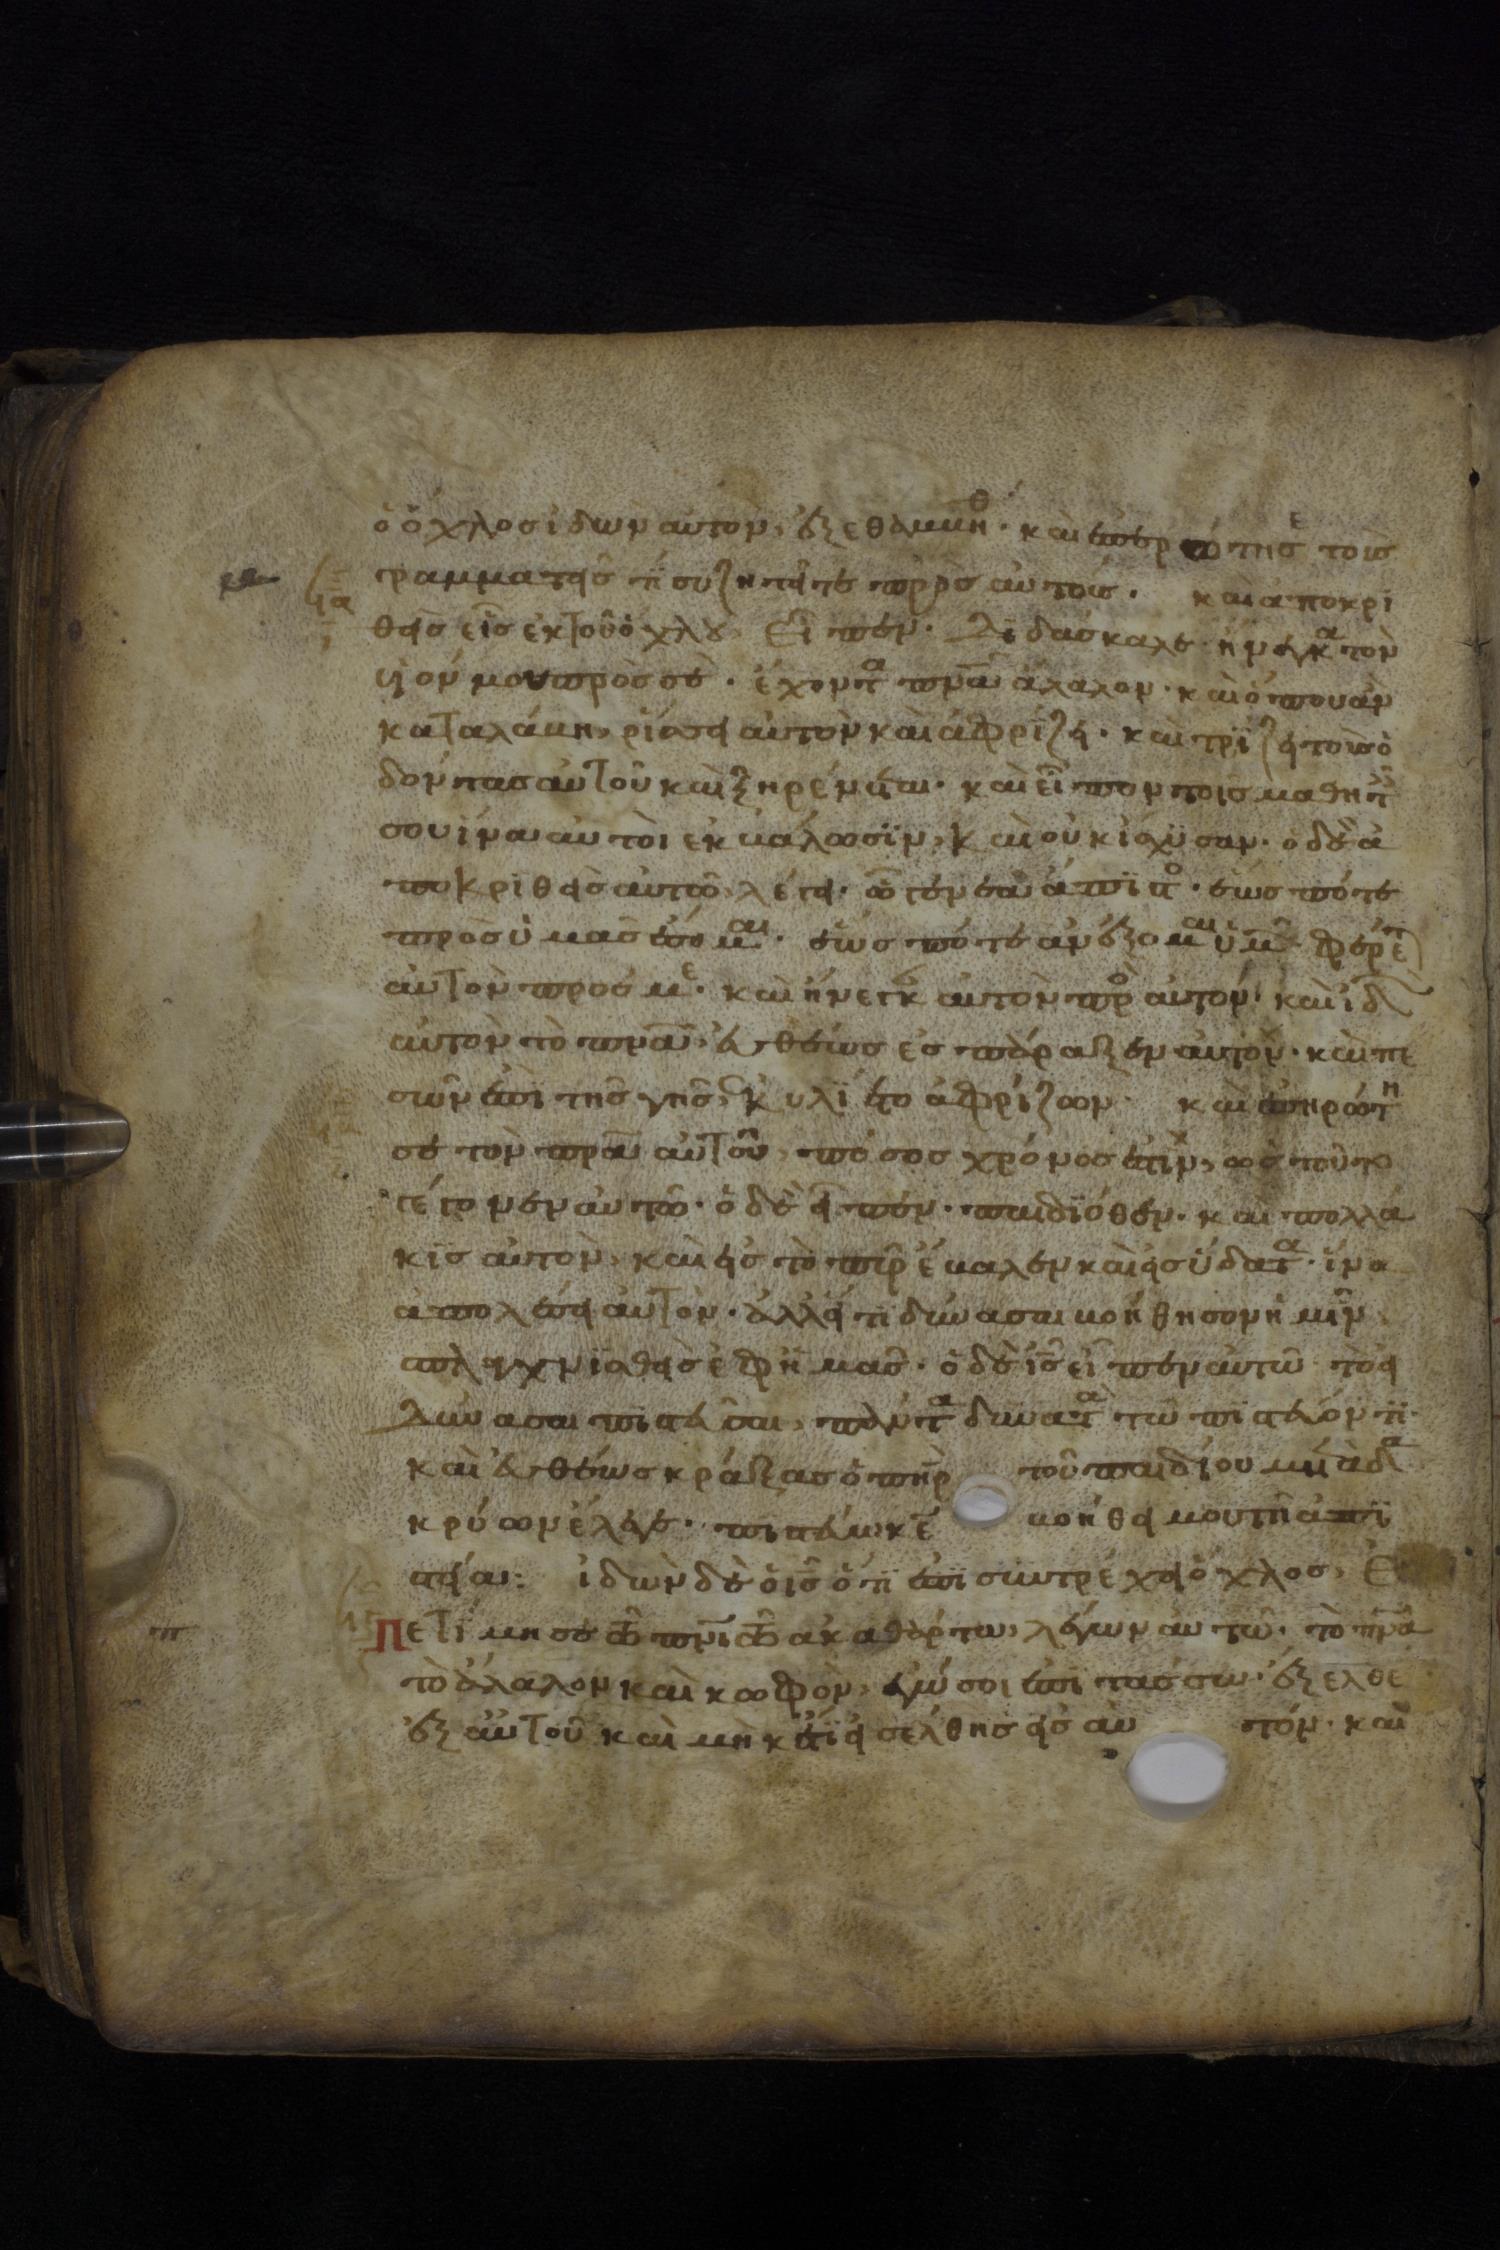 ὁ ὄχλος ἰδὼν αὐτὸν, ἐξεθαμβήθ· καὶ ἐπερώτησε τοὺς
γραμματεῖς τί συζητεῖτε πρὸς αὐτούς. καὶ ἀποκρι
θεὶς εἷς ἐκ τοῦ ὄχλου, εἶπεν· Διδάσκαλε ἤνεγκα τὸν
υἱόν μου πρὸς σὲ· ἔχοντα πνα ἄλαλον· καὶ ὅπου ἂν
καταλάβη, ρήσσει αὐτὸν καὶ ἀφρίζει· καὶ τρίζει τοὺς ὀ
δόντας αὐτοῦ καὶ ξηραίνεται· καὶ εἶπον τοῖς μαθητ
σου ἵνα αὐτὸ ἐκβάλωσιν, καὶ οὐκ ἴσχυσαν. ὁ δὲ ἀ
ποκριθεὶς αὐτῶ λέγει· ὦ γενεὰ ἄπιστο· ἕως πότε
πρὸς ὑμᾶς ἔσομαι· ἕως πότε ἀνέξομαι ὑμ· φέρετε
αὐτὸν πρός με· καὶ ἤνεγκ αὐτὸν πρὸ αὐτόν· καὶ ἰδ
αὐτὸν τὸ πνα, εὐθέως ἐσπάραξεν αὐτὸν· καὶ πε
σὼν ἐπὶ τῆς γῆς, ἐκυλίετο ἀφρίζων· καὶ ἐπηρώτη
σε τὸν πρα αὐτοῦ, πόσος χρόνος ἐστὶν, ὡς τοῦτο
γέγονεν αὐτῶ· ὁ δὲ εἶπεν· παιδιόθεν· καὶ πολλά
κις αὐτὸν, καὶ εἰς τὸ πῦρ ἔβαλεν καὶ εἰς ὕδατα· ἵνα
ἀπολέσει αὐτὸν· ἀλλ εἴ τι δύνασαι βοήθησον ἡμῖν
σπλαγχνισθεὶς ἐφ ἡμᾶς· ὁ δὲ ις εἶπεν αὐτῶ τὸ εἰ
δύνασαι πιστεῦσαι, πάντα δυνατὰ τῶ πιστεύοντι·
καὶ εὐθέως κράξας ὁ πηρ τοῦ παιδίου μετὰ δα
κρύων ἔλεγε· πιστεύω κε βοήθει μου τῆ ἀπι
στία: ἰδὼν δὲ ὁ ις ὅτι ἐπισυντρέχει ὄχλος, Ἐ
πετίμησε τῶ πνι τῶ ἀκαθάρτω, λέγων αὐτῶ· τὸ πνα
τὸ ἄλαλον καὶ κωφὸν, ἐγώ σοι ἐπιτάσσω· ἔξελθε
ἐξ αὐτοῦ καὶ μηκέτι εἰσέλθης εἰς αὐ τόν· καὶ